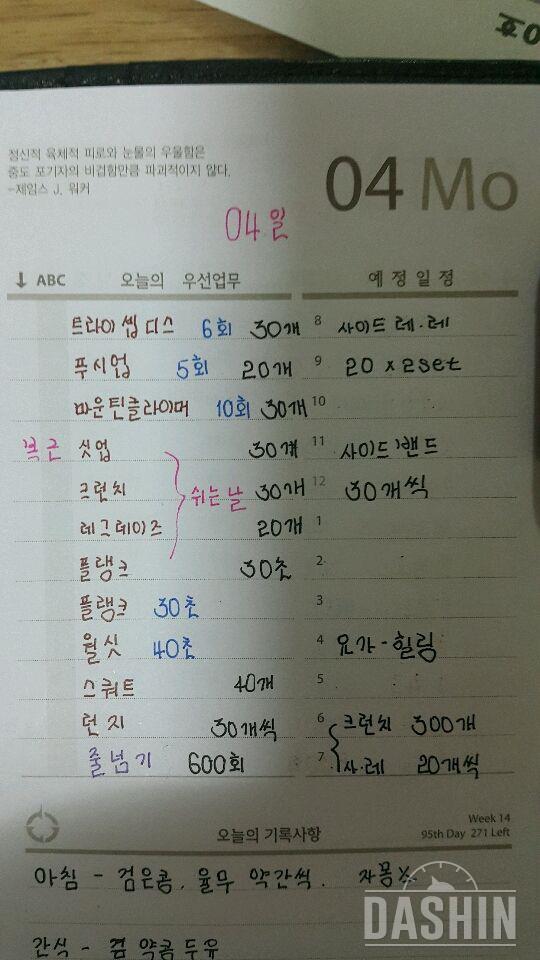 호0
정신적 육체적 피로와 눈물의 우울함은
중도 포기자의 비겁함만큼 파괴적이지 않다.
-제임스 J. 워커
04 Mo
04일
↓ ABC 오늘의 우선업무 예정일정
트라이쎕디스 6회 30개 8 사이드레.레
푸시업 5회 20개 9 20 x 2set
마운틴클라이머 10회 30개 10
복근 싯업 30개 11 사이드밴드
크런치 쉬는날 30개 12 30개씩
레그레이즈 20개 1
플랭크 30초 2
플랭크 30초 3
월싯 40초 4 요가-힐링
스쿼트 40개 5
런지 30개씩 6 크런치 300개
줄넘기 600회 7 사.레 20개씩
Week 14
오늘의 기록사항 95th Day 271 Left
아침 - 검은콩, 율무 약간씩. 자몽½
DASHIN
간식 - 검약콩두유